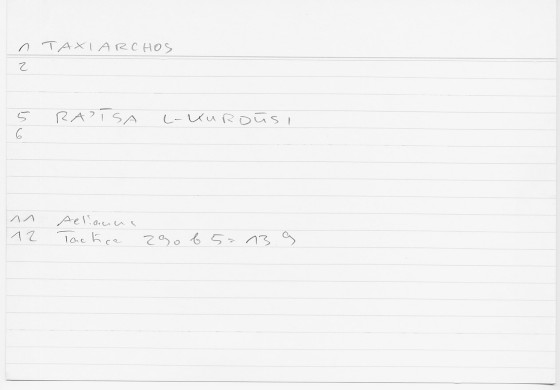 1 TAXIARCHOS
2
5 RA'ĪSA L-KURDŪSI
6
11 Aelianus
12 Tactica 290 b 5 = 13 9